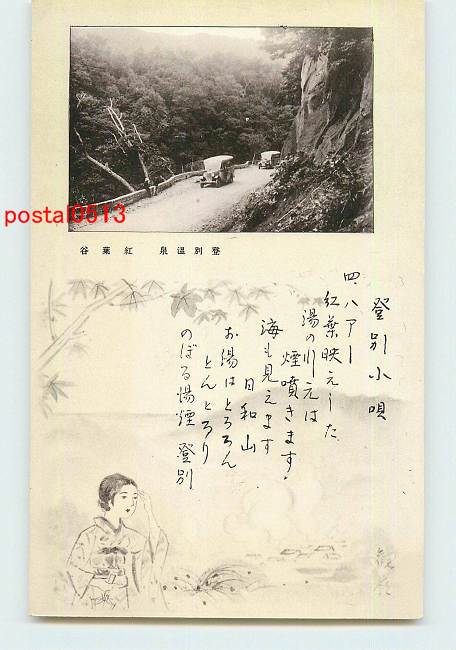 postal0513
登別温泉 紅葉谷
登別小唄
四、ハアー
紅葉映えした
湯の川元は
煙噴きます
海も見えます
日和山
お湯はとろろん
とんとろり
のぼる湯煙 登別